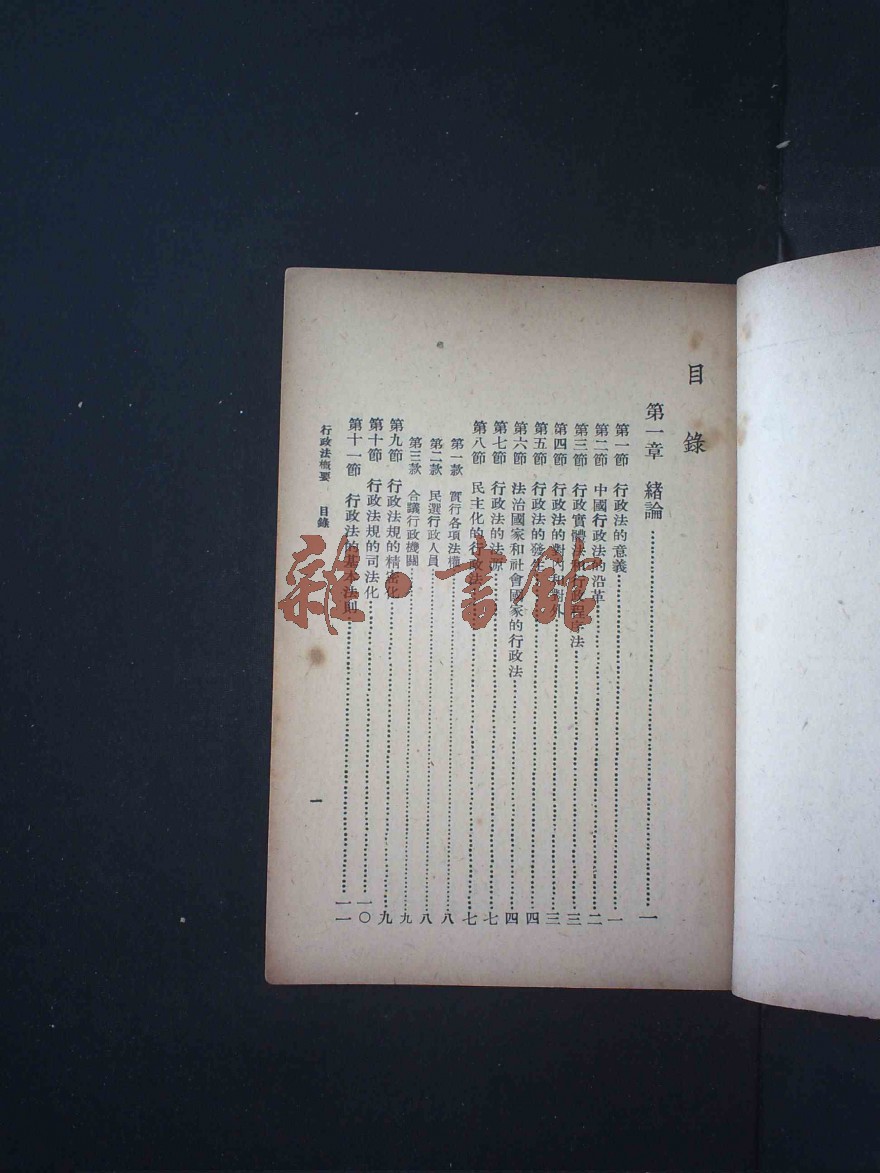 目錄
第一章 緒論 一
第一節 行政法的意義 一
第二節 中國行政法的沿革 二
第三節 行政實體法和行政程序法 三
第四節 行政法的對內和對外 三
第五節 行政法的發生 四
第六節 法治國家和社會國家的行政法 四
第七節 行政法的法源 七
第八節 民主化的行政法 七
第一款 實行各項法權 八
第二款 民選行政人員 八
第三款 合議行政機關 九
第九節 行政法規的精密化 九
第十節 行政法規的司法化 一〇
第十一節 行政法的基本法則 一一
行政法概要 目錄 一
雜·書館